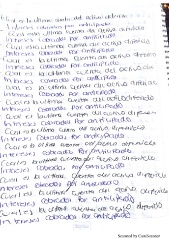 Cual es la ultima cuenta del activo diferido
Intereses cobrados por anticipado
Cual es la ultima cuenta del activo diferido
Intereses Cobrados por anticipado
Cual es la ultima cuenta del activo diferido
Intereses Cobrados por anticipado
Cual es la ultima cuenta del activo diferido
Intereses Cobrados por anticipado
Cual es la ultima cuenta del activo diferido
Intereses Cobrados por anticipado
Cual es la ultima cuenta del activo diferido
Intereses cobrados por anticipado
Cual es la ultima cuenta del activo diferido
Intereses cobrados por anticipado
Cual es la ultima cuenta del activo diferido
Intereses cobrados por anticipado
Cual es la ultima cuenta por activo diferido
Intereses cobrados por anticipado
Cual es la ultima cuenta por activo diferido
Intereses Cobrados por Anticipado
Cual es la ultima cuenta del activo diferido
Intereses cobrados por anticipado
Cual es la ultima cuenta del activo diferido
Intereses cobrados por anticipado
Cual es la ultima cuenta del activo diferido
Intereses cobrados por anticipado
Scanned by CamScanner